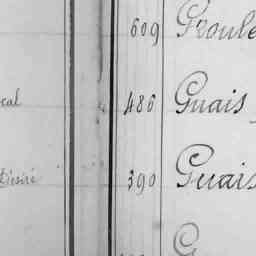 609 Groule
cal 486 Guais
Désiré 390 Guais
G